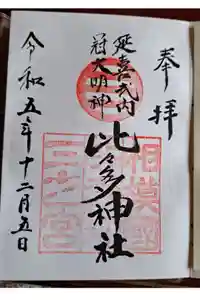 奉拝
延喜式内
冠大明神
比々多神社
相模国
三之宮
令和五年十二月五日